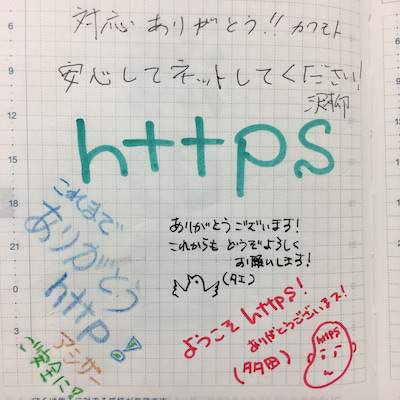 対応ありがとう!! カワモト
安心してネットしてください!
沢柳
https
これまで
ありがとう
http!
アシザー
ご安全に!
ありがとうございます!
これからも どうぞよろしく
お願いします!
(タエ)
ようこそ https!
ありがとうございます!
(多田)
https
6
9
12
15
18
21
0
3